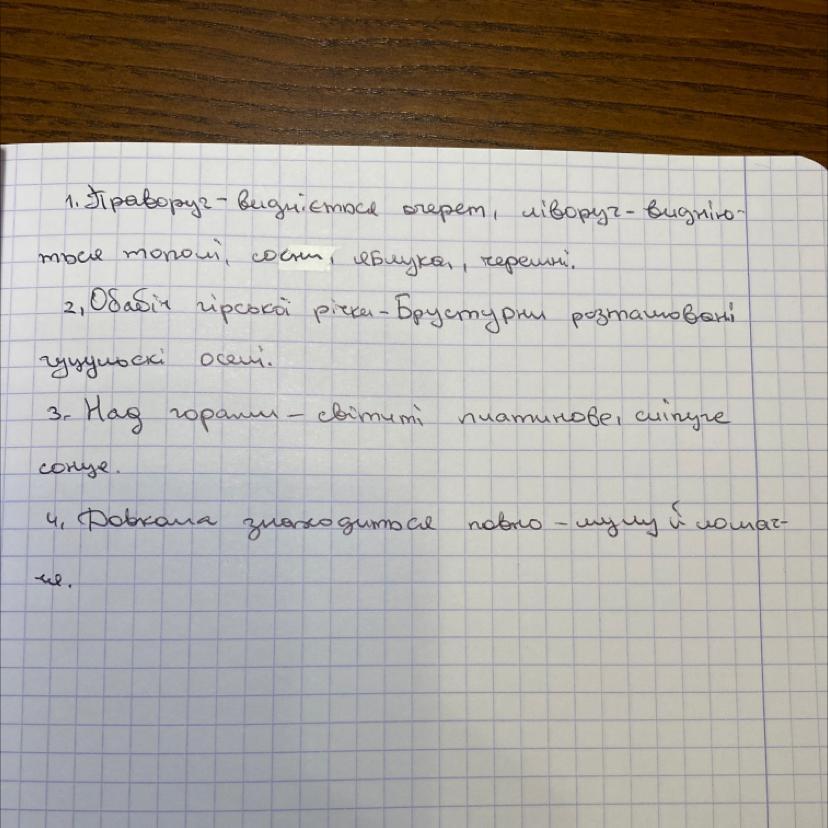 1. Праворуч - виднієтося очерет, ліворуч - видніютося
тося тополі, сосни, яблука, черешні.
2, Обабіч гірської річки - Брустурни розташовані
гуцульскі оселі.
3. Над горами - світить платинове, сліпуче
сонце.
4, Довкола знаходиться повно - мулу й ломач-
чя.